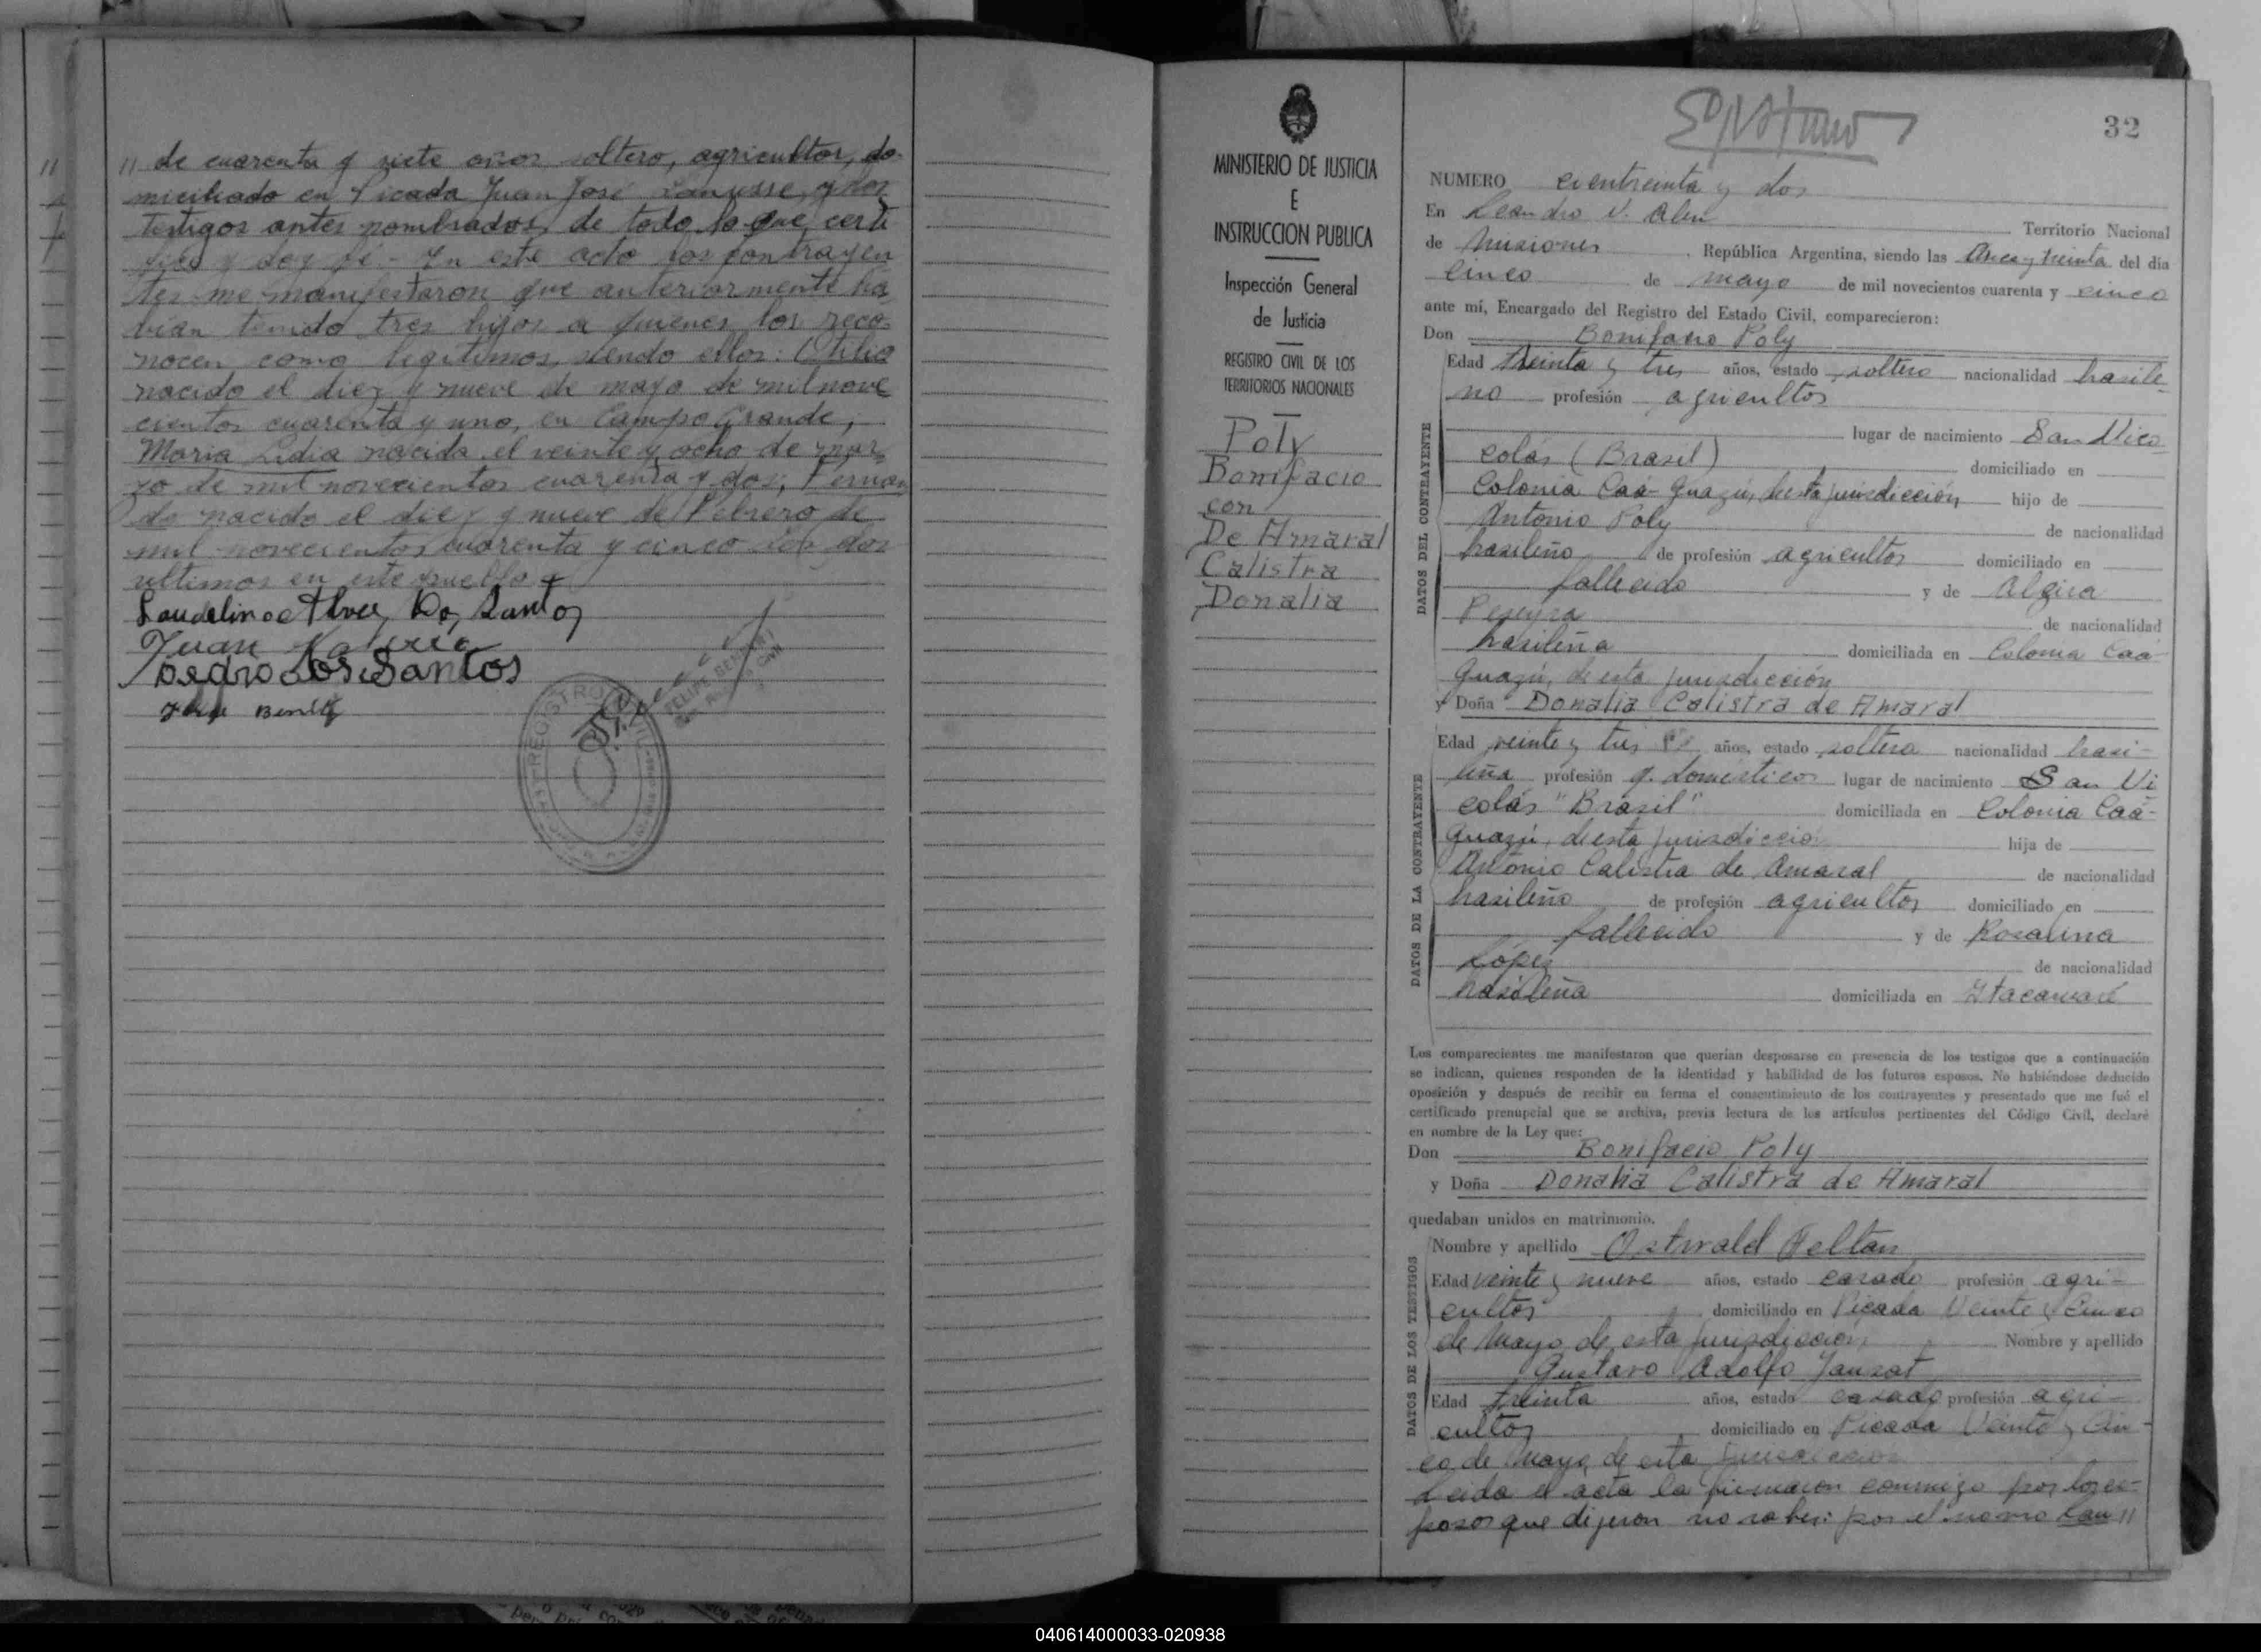 11
" de cuarenta y siete años soltero, agricultor, do-
miciliado en Picada Juan José Lanusse, y los
testigos antes nombrados, de todo lo que certi
fico y doy fé.- En este acto los contrayen
tes me manifestaron que anteriormente ha
bían tenido tres hijos a quienes los reco-
nocen como legítimos, siendo ellos:
nacido el diez y nueve de mayo de mil nove
cientos cuarenta y uno, en Campo Grande,
Maria Lidia nacida el veinte y ocho de mar
zo de mil novecientos cuarenta y dos;
do nacido el diez y nueve de Febrero de
mil novecientos cuarenta y cinco los dos
ultimos en este pueblo
Dos Santos
Juan
Pedro Dos Santos
REGISTRO CIVIL
FELIPE
MINISTERIO DE JUSTICIA
E
INSTRUCCION PUBLICA
Inspección General
de Justicia
REGISTRO CIVIL DE LOS
TERRITORIOS NACIONALES
Poly
Bonifacio
con
De Amaral
Calistra
Donalia
32
NUMERO treinta y dos
En Leandro N. Alem Territorio Nacional
de Misiones República Argentina, siendo las once y treinta del día
cinco de mayo de mil novecientos cuarenta y cinco
ante mí, Encargado del Registro del Estado Civil, comparecieron:
Don Bonifacio Poly
DATOS DEL CONTRAYENTE
Edad treinta y tres años, estado soltero nacionalidad brasile-
ño profesión agricultor
lugar de nacimiento San Nico
colás (Brasil) domiciliado en
Colonia Caá-Guazú, de esta jurisdicción hijo de
Antonio Poly de nacionalidad
brasileño de profesión agricultor domiciliado en
fallecido y de Algira
Pereyra de nacionalidad
brasileña domiciliada en Colonia Caá
Guazú, de esta jurisdicción
y Doña Donalia Calistra de Amaral
DATOS DE LA CONTRAYENTE
Edad veinte y tres años, estado soltera nacionalidad brasi-
leña profesión q. domésticos lugar de nacimiento San Ni
colás "Brasil" domiciliada en Colonia Caá-
Guazú, de esta jurisdicción hija de
Antonio Calistra de Amaral de nacionalidad
brasileño de profesión agricultor domiciliado en
fallecido y de Rosalina
López de nacionalidad
brasileña domiciliada en Itacaruaré
Los comparecientes me manifestaron que querían desposarse en presencia de los testigos que a continuación
se indican, quienes responden de la identidad y habilidad de los futuros esposos. No habiéndose deducido
oposición y después de recibir en forma el consentimiento de los contrayentes y presentado que me fué el
certificado prenupcial que se archiva, previa lectura de los artículos pertinentes del Código Civil, declaré
en nombre de la Ley que:
Don Bonifacio Poly
y Doña Donalia Calistra de Amaral
quedaban unidos en matrimonio.
DATOS DE LOS TESTIGOS
Nombre y apellido Ostwald Feltan
Edad veinte y nueve años, estado casado profesión agri-
cultor domiciliado en Picada Veinte y Cinco
de Mayo de esta jurisdicción Nombre y apellido
Gustavo Adolfo Janzat
Edad treinta años, estado casado profesión agri-
cultor domiciliado en Picada Veinte y Cin-
co de Mayo, de esta jurisdicción
Leida el acta la firmaron conmigo por los es-
posos que dijeron no saber: por el novio Lau "
040614000033-020938